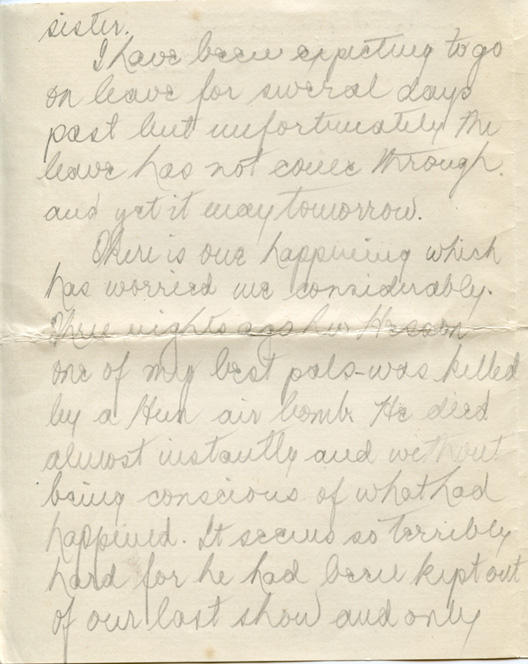 sister.
I have been expecting to go
on leave for several days
past but unfortunately the
leave has not come through.
and yet it may tomorrow.
There is one happening which
has worried me considerably.
Three nights ago
one of my best pals - was killed
by a Hun air bomb. He died
almost instantly and without
being conscious of what had
happened. It seems so terribly
hard for he had been kept out
of our last show and only